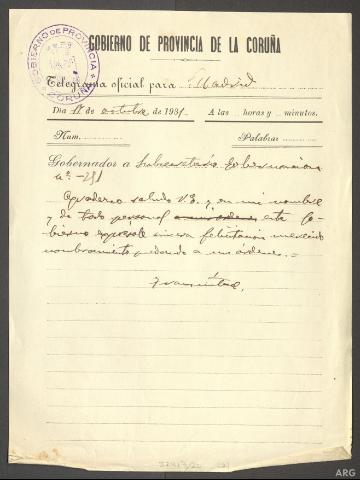 GOBIERNO DE PROVINCIA DE LA CORUÑA
GOBIERNO DE PROVINCIA
CORUÑA
Telegrama oficial para Madrid
Día 17 de octubre de 1931 A las horas y minutos.
Núm. Palabras
Gobernador a Subsecretario Gobernacion
nº -291
saludo V.E. y en mi nombre
y de todo personal este Go-
bierno sincera felicitacion merecido
nombramiento a sus órdenes.=
ARG